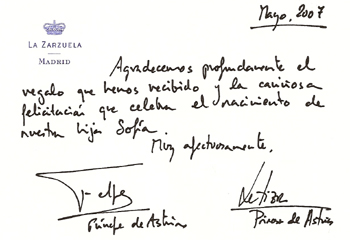 Mayo, 2007
LA ZARZUELA
MADRID
Agradecemos profundamente el
regalo que hemos recibido y la cariñosa
felicitación que celebra el nacimiento de
nuestra hija Sofía.
Muy afectuosamente,
Felipe Letizia
Príncipe de Asturias Princesa de Asturias